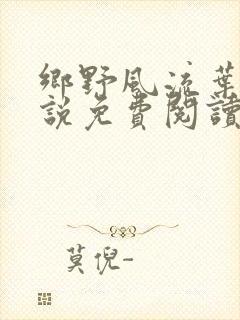 鄉野風流葉
說免費閱讀
莫倪-